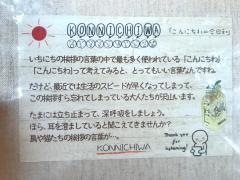 KONNICHIWA
「こんにちわ=今日和」
いちにちの挨拶の言葉の中で最も多く使われている「こんにちわ」
「こんにちわ」って考えてみると、とってもいい言葉なんですね。
だけど、最近では生活のスピードが早くなってしまって、
この挨拶すら忘れてしまっている大人たちが沢山います。
たまには立ち止まって、深呼吸をしましょう。
ほら、耳を澄ましていると聞こえてきませんか?
鳥や猫たちの挨拶の言葉が…。
KONNICHIWA
Thank you
for
listening!